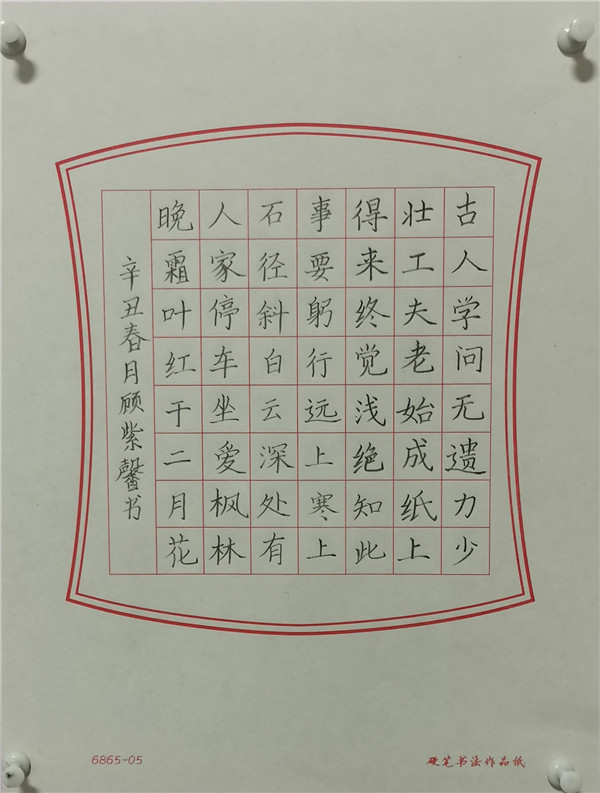 古人学问无遗力少
壮工夫老始成纸上
得来终觉浅绝知此
事要躬行远上寒上
石径斜白云深处有
人家停车坐爱枫林
晚霜叶红于二月花
辛丑春月顾紫馨书
6865-05
硬笔书法作品纸